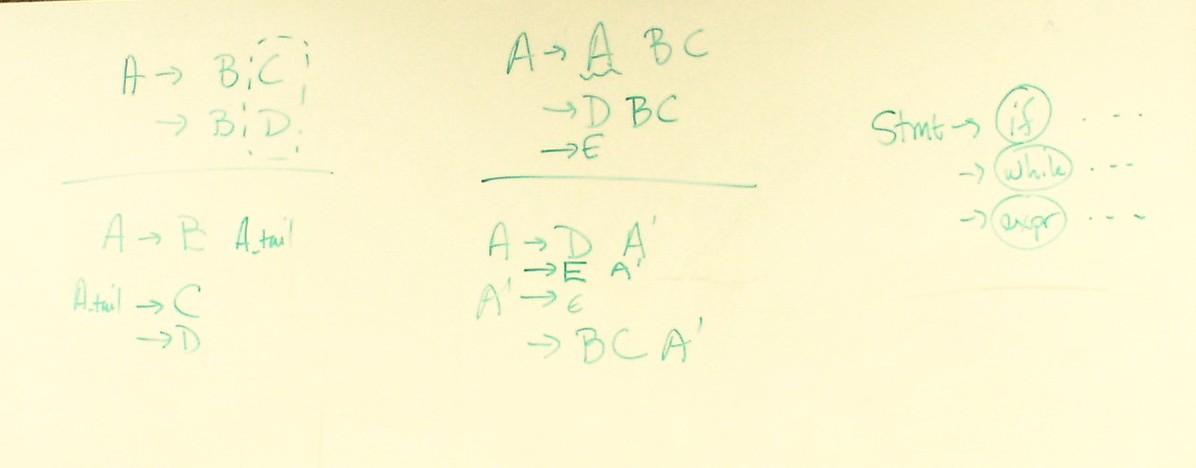 A → B C
→ B D
A → B A_tail
A_tail → C
→ D
A → A B C
→ D B C
→ E
A → D A'
→ E A'
A' → ε
→ B C A'
Stmt → if ....
→ while ...
→ expr ....